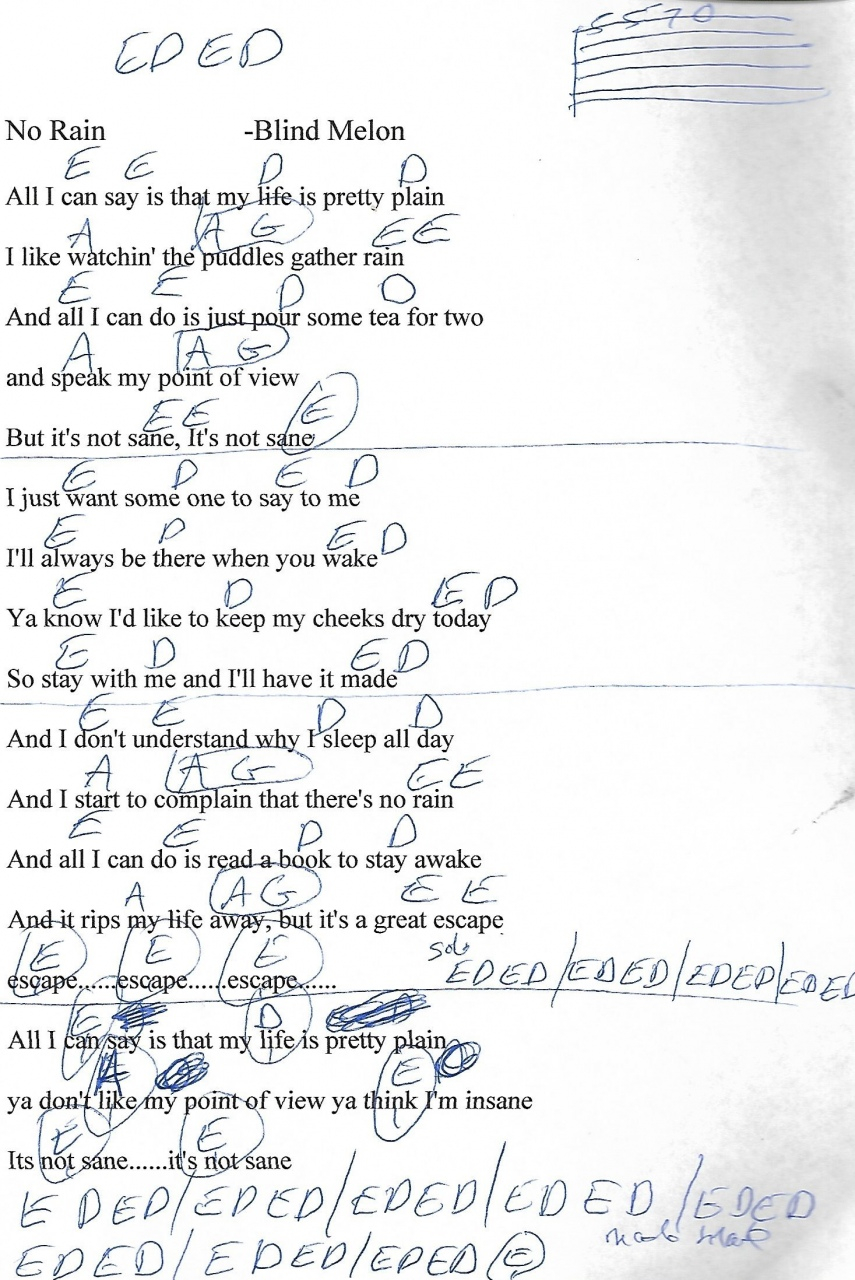 E D E D
5 5 7 0
No Rain -Blind Melon
E E D D
All I can say is that my life is pretty plain
A A G E E
I like watchin' the puddles gather rain
E E D D
And all I can do is just pour some tea for two
A A G
and speak my point of view
E E E
But it's not sane, It's not sane
E D E D
I just want some one to say to me
E D E D
I'll always be there when you wake
E D E D
Ya know I'd like to keep my cheeks dry today
E D E D
So stay with me and I'll have it made
E E D D
And I don't understand why I sleep all day
A A G E E
And I start to complain that there's no rain
E E D D
And all I can do is read a book to stay awake
A A G E E
And it rips my life away, but it's a great escape
E E E solo
escape......escape......escape...... E D E D / E D E D / E D E D / E D E D
E D
All I can say is that my life is pretty plain
A E
ya don't like my point of view ya think I'm insane
E E
Its not sane......it's not sane
E D E D / E D E D / E D E D / E D E D / E D E D
E D E D / E D E D / E D E D / E